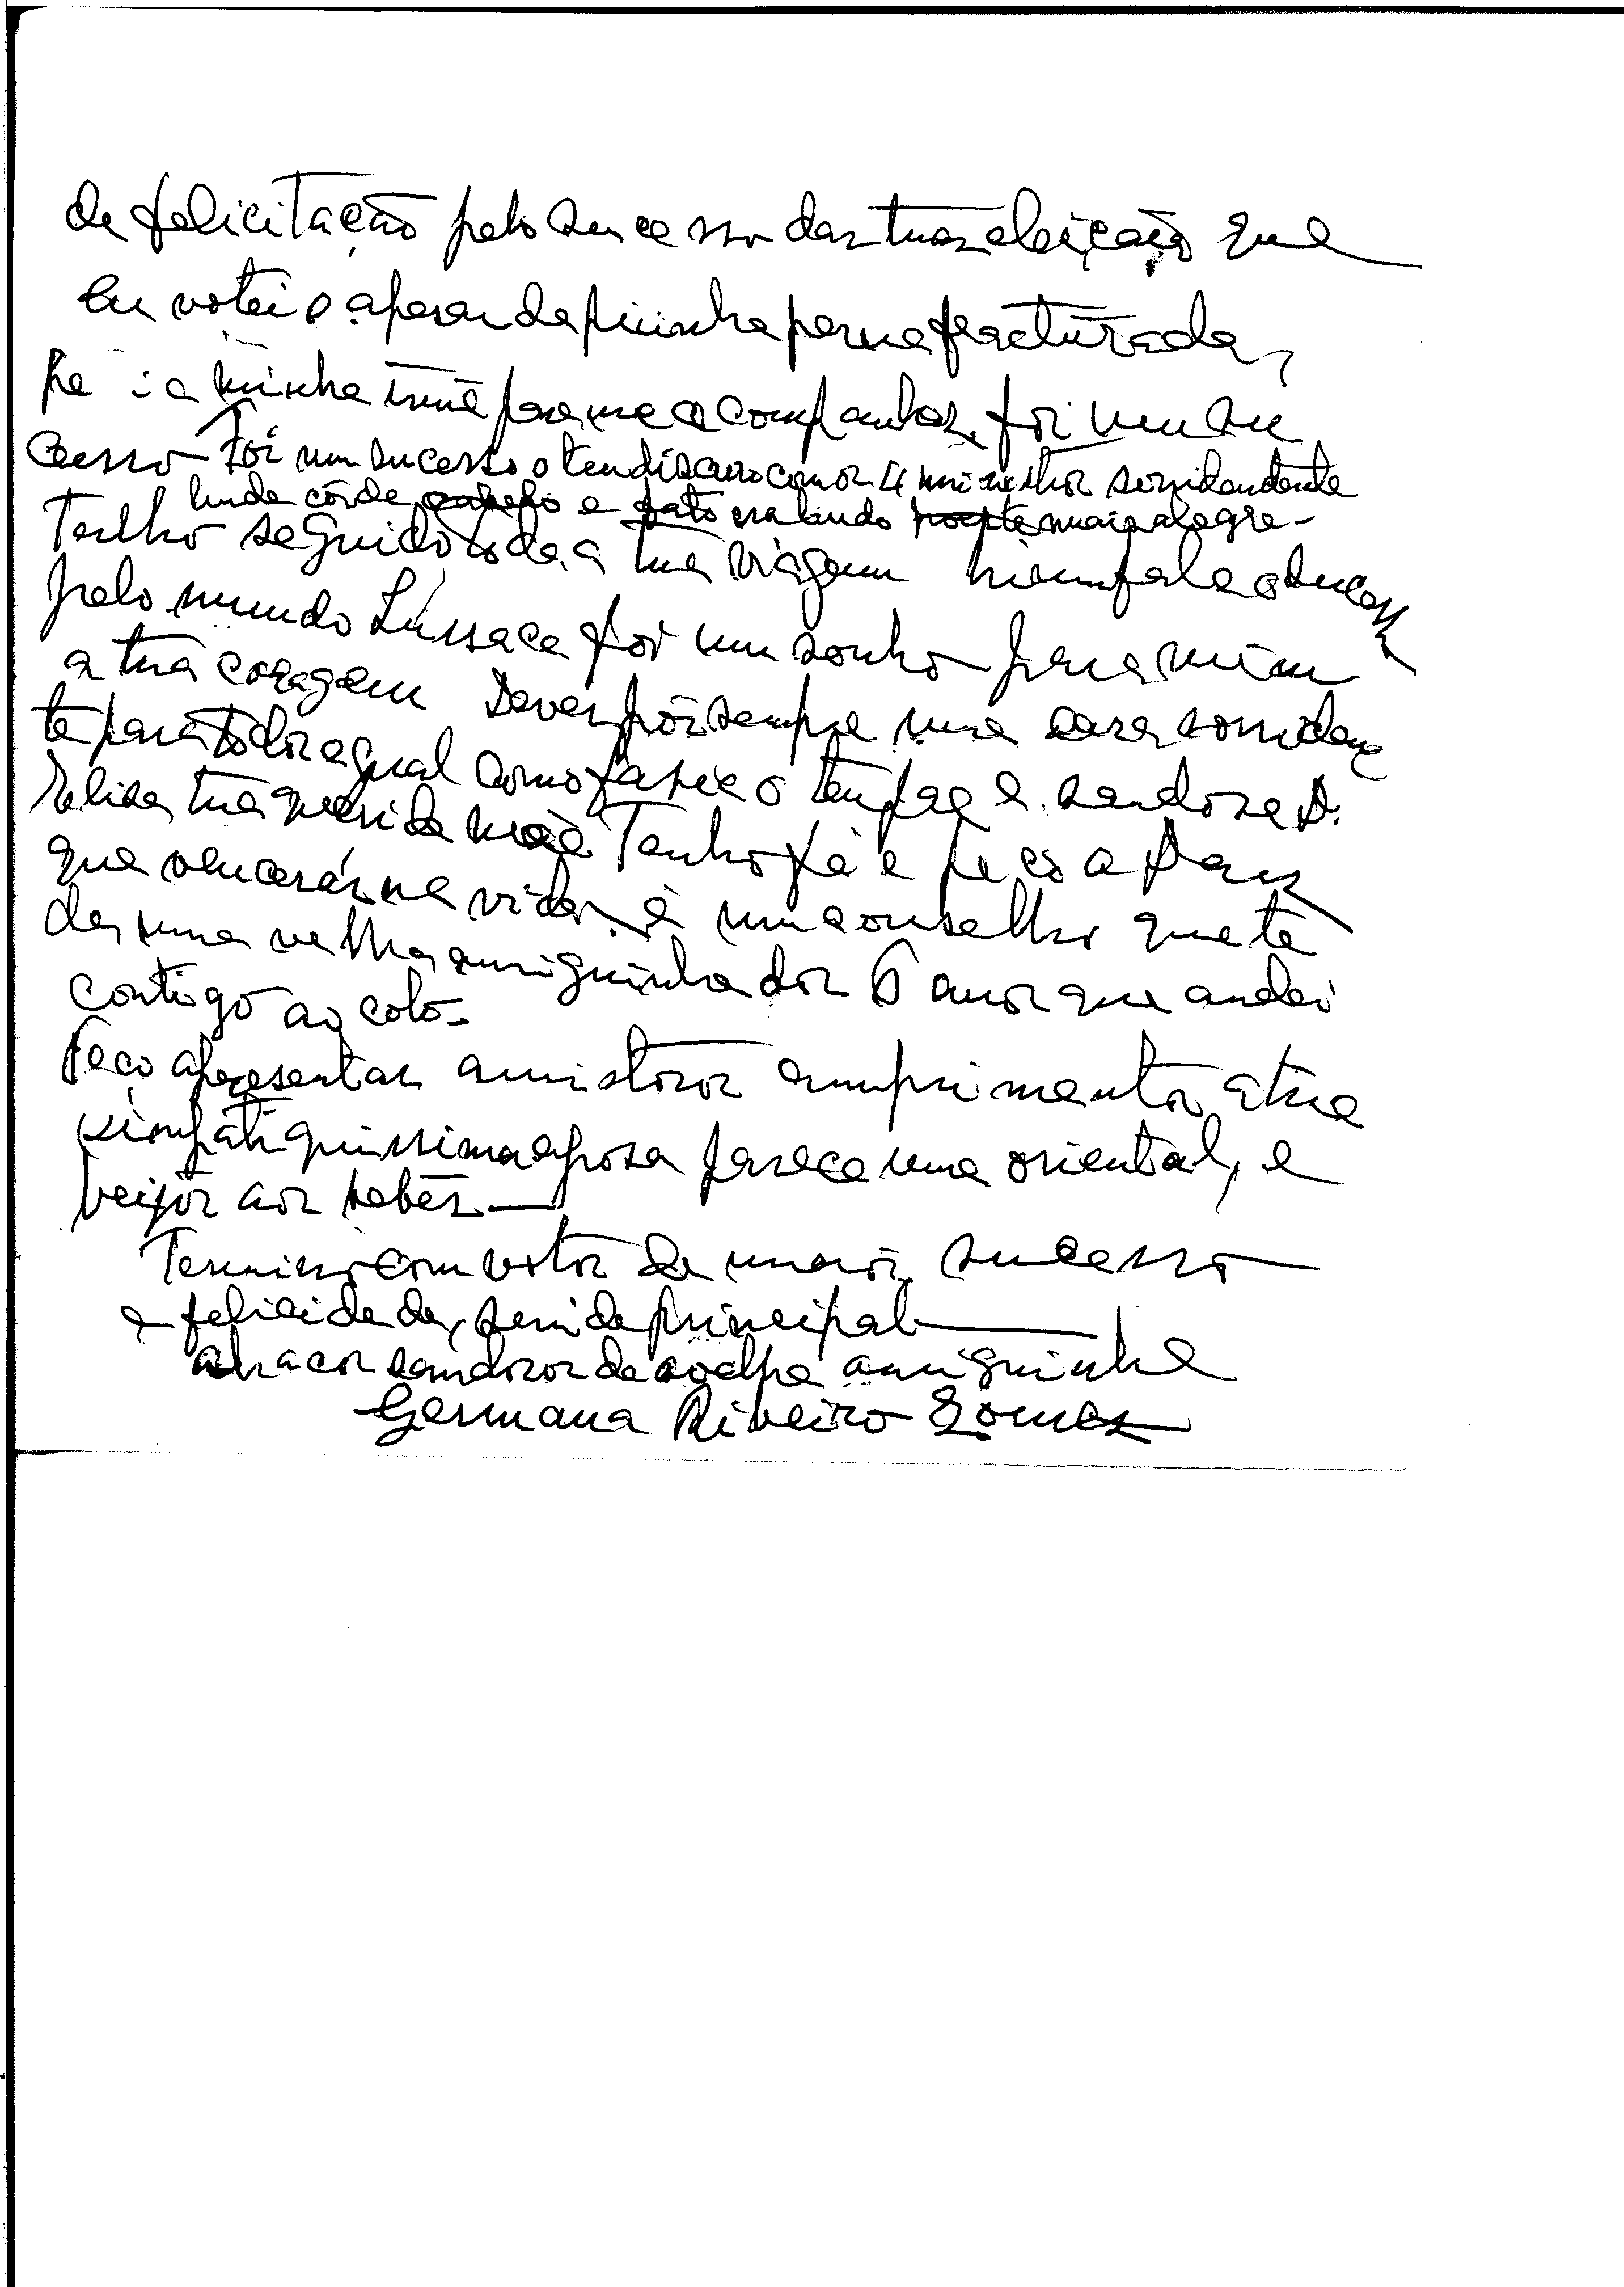 de felicitação pelo sucesso das tuas eleição que
eu votei apesar da minha perna fracturada,
a minha irmã para me acompanhar, foi um su
cesso Foi um sucesso o teu discurso com os 4 sorridente
linda côr de e fato era lindo mais alegre -
Tenho seguido toda a tua viagem triunfal e o sucesso
pelo mundo Lusaca foi um sonho para mim
a tua coragem Deves pôr sempre uma cara sorriden
te para todos egual como fasia o teu pae e saudosa D.
Elisa tua querida mãe Tenho fé e peço a Deus
que vencerás na vida. é um conselho que te
da uma velha amiguinha dos 6 anos que andei
contigo ao colo -
Peço apresentar amistosos cumprimentos á tua
simpatiquissima esposa parece uma oriental, e
beijos aos bebés. —
Termino com votos de maior sucesso
e felicidades, principal
abraços saudosos da velha amiguinha
Germana Ribeiro Gomes